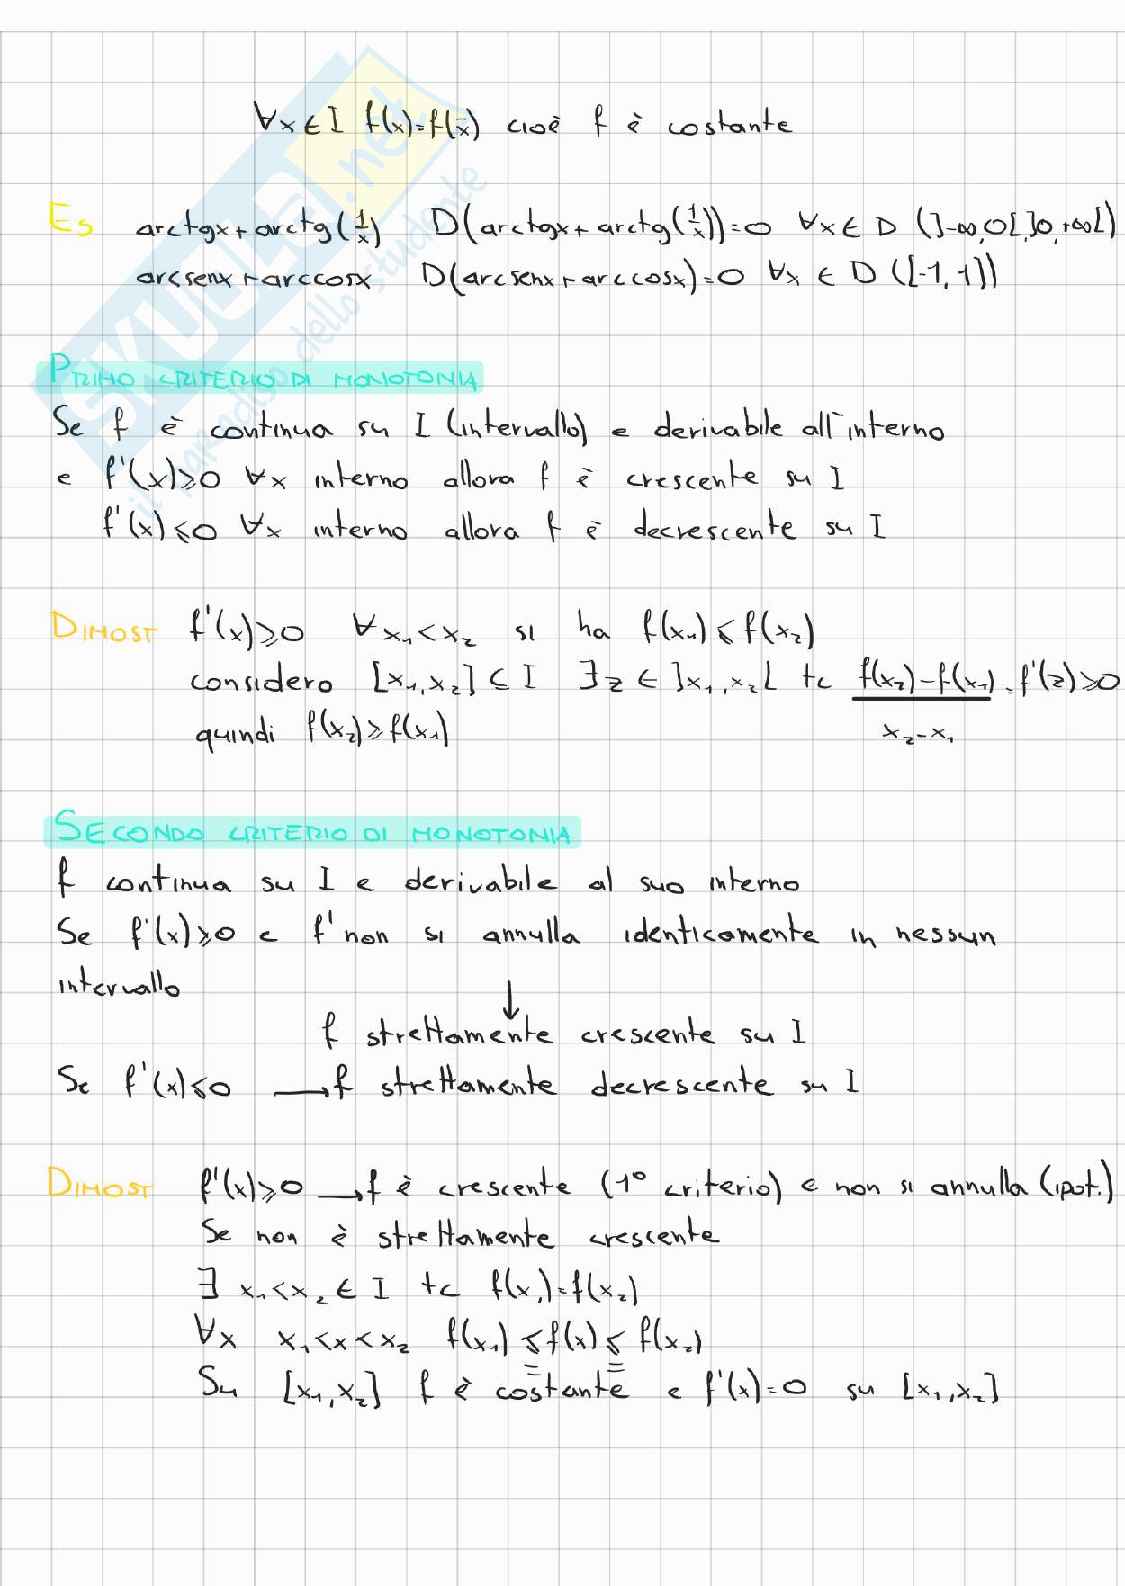 ∀x∈I f(x)=f(x̄) cioè f è costante
Es arctgx+arctg(1/x) D(arctgx+arctg(1/x))=0 ∀x∈D (]-∞,0[,]0,+∞[)
arcsenx+arccosx D(arcsenx+arccosx)=0 ∀x ∈ D ([-1,1])
PRIMO CRITERIO DI MONOTONIA
Se f è continua su I (intervallo) e derivabile all'interno
e f'(x)≥0 ∀x interno allora f è crescente su I
f'(x)≤0 ∀x interno allora f è decrescente su I
DIMOST f'(x)≥0 ∀x₁<x₂ si ha f(x₁)≤f(x₂)
considero [x₁,x₂]⊆I ∃z∈]x₁,x₂[ tc f(x₂)-f(x₁)/x₂-x₁ = f'(z)≥0
quindi f(x₂)≥f(x₁)
SECONDO CRITERIO DI MONOTONIA
f continua su I e derivabile al suo interno
Se f'(x)≥0 e f' non si annulla identicamente in nessun
intervallo
↓
f strettamente crescente su I
Se f'(x)≤0 → f strettamente decrescente su I
DIMOST f'(x)≥0 → f è crescente (1° criterio) e non si annulla (ipot.)
Se non è strettamente crescente
∃ x₁<x₂ ∈ I tc f(x₁)=f(x₂)
∀x x₁<x<x₂ f(x₁)≤f(x)≤f(x₂)
= =
Su [x₁,x₂] f è costante e f'(x)=0 su [x₁,x₂]
SKUOLA.net
il paradiso dello studente